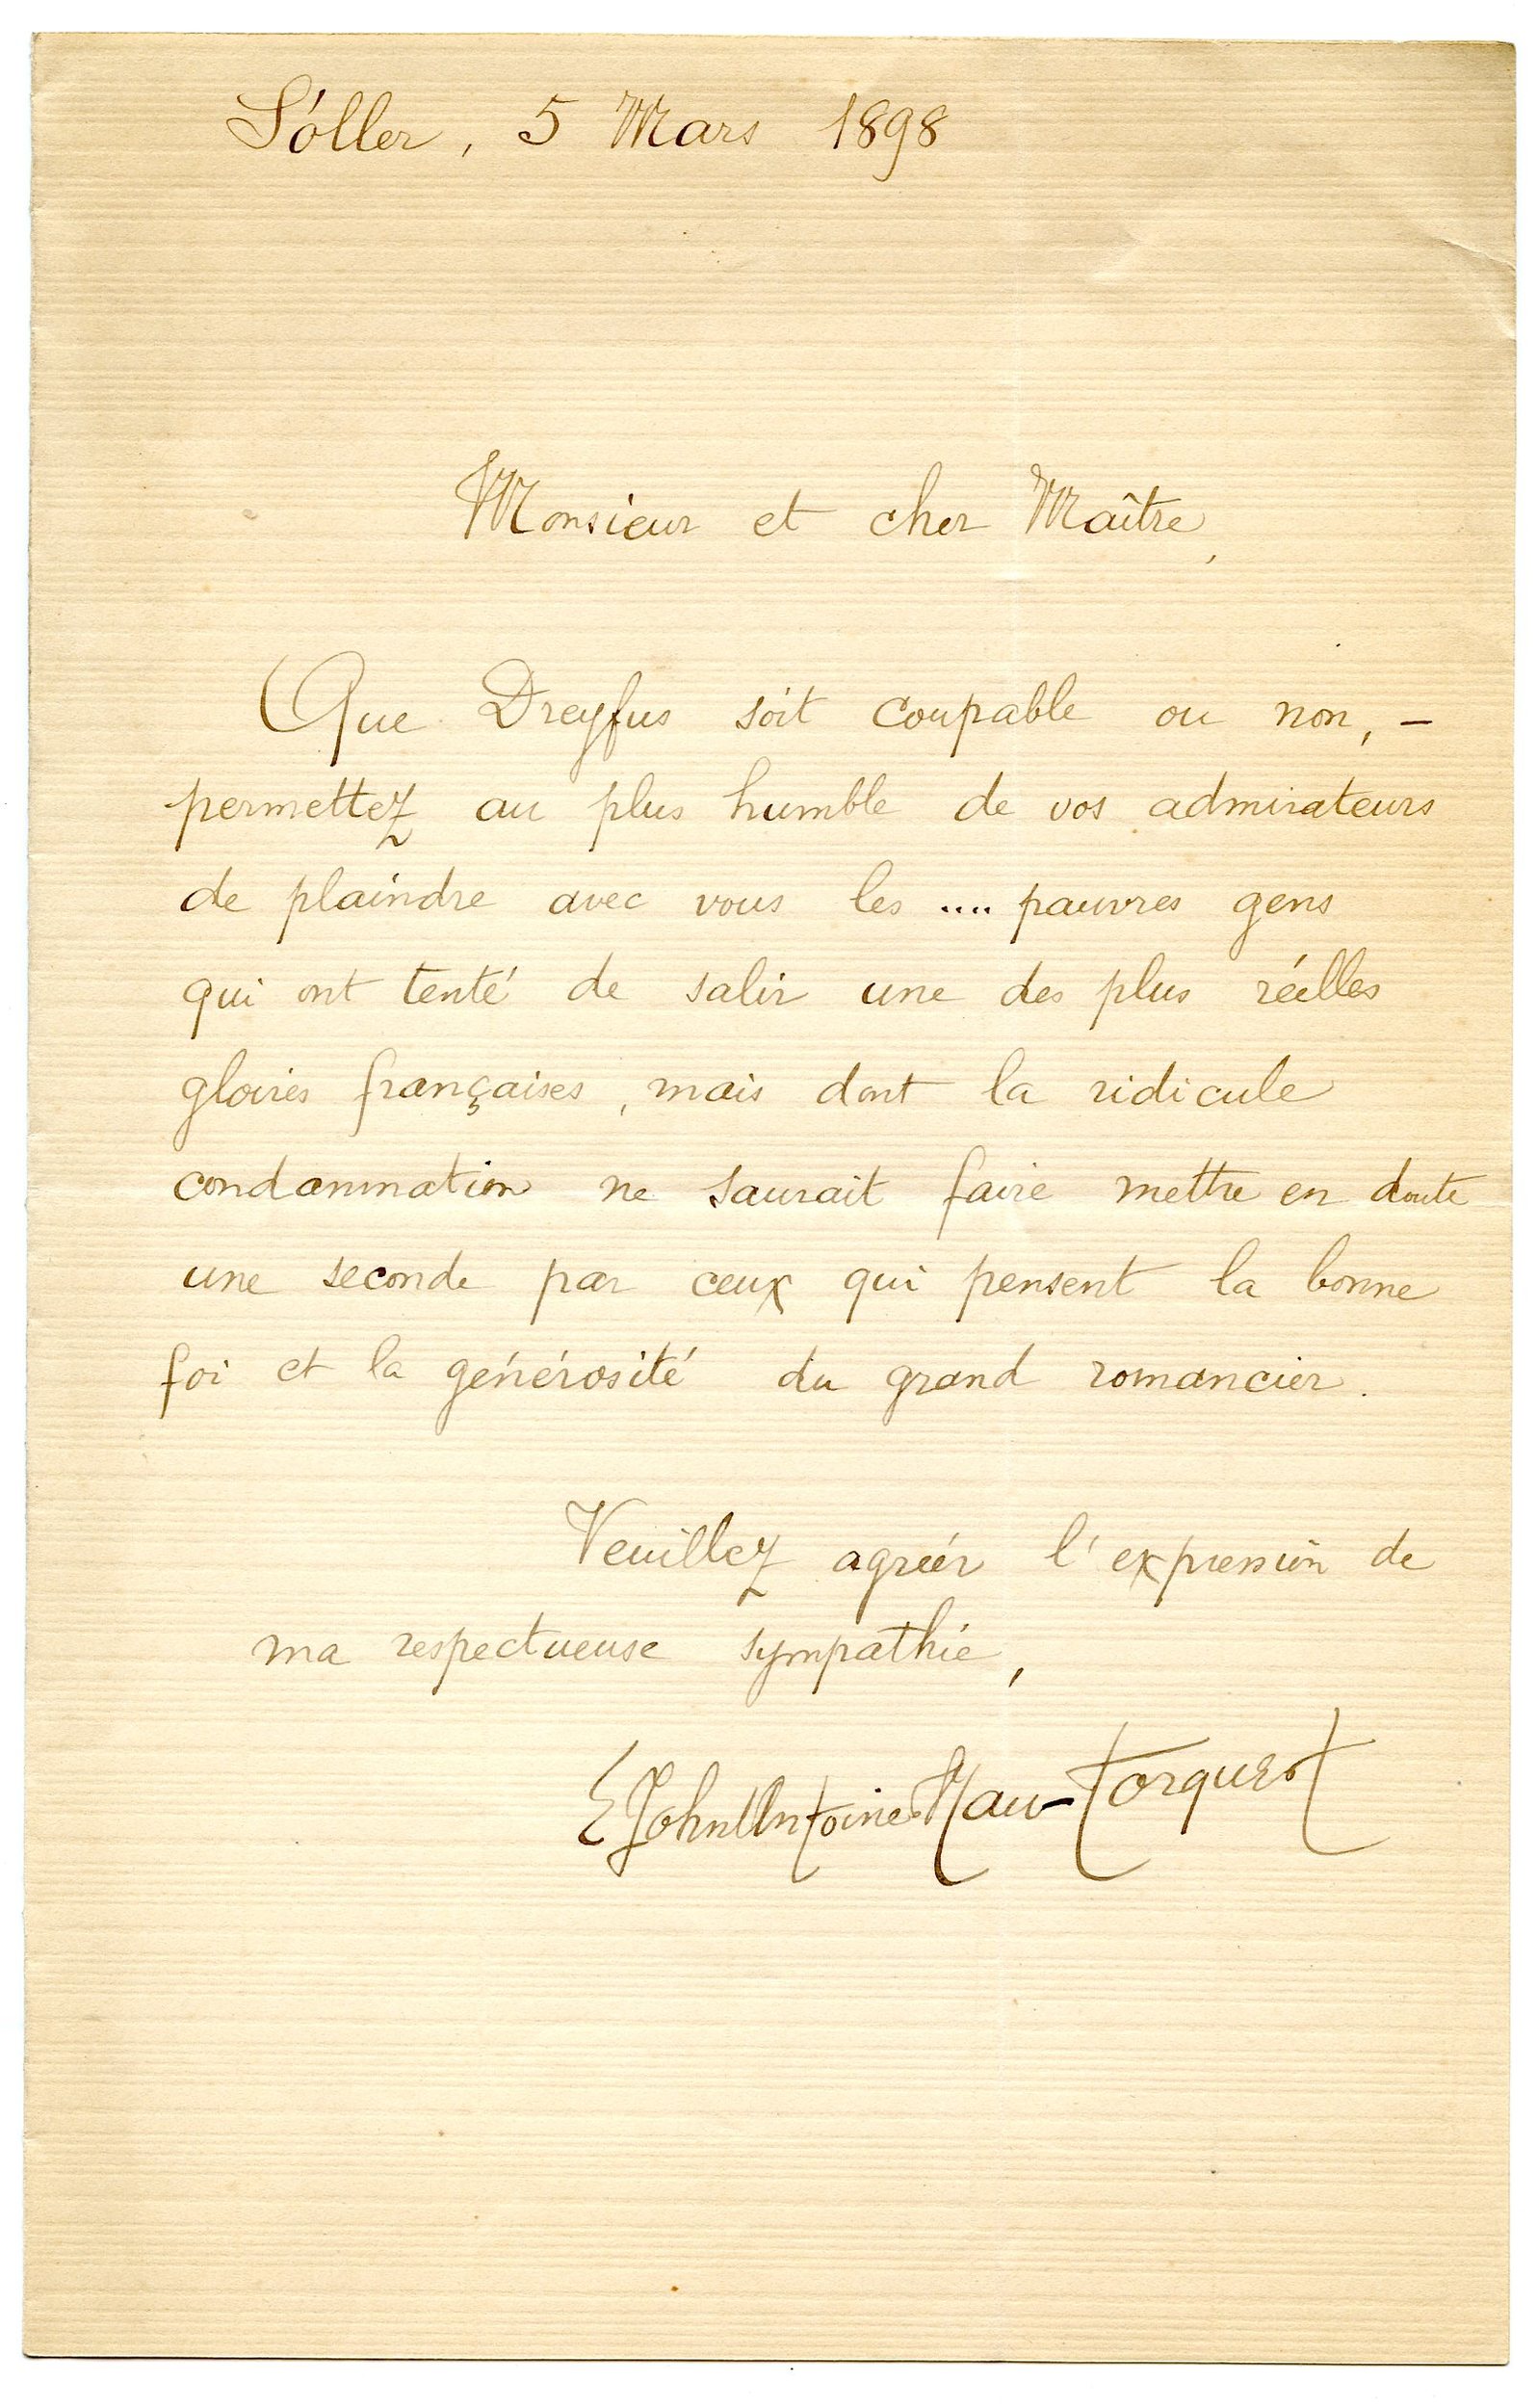 Sóller, 5 Mars 1898
Monsieur et cher Maître,
Que Dreyfus soit coupable ou non, –
permettez au plus humble de vos admirateurs
de plaindre avec vous les .... pauvres gens
qui ont tenté de salir une des plus réelles
gloires françaises, mais dont la ridicule
condamnation ne saurait faire mettre en doute
une seconde par ceux qui pensent la bonne
foi et la générosité du grand romancier.
Veuillez agréer l'expression de
ma respectueuse sympathie,
E John Antoine Nau-Torquet